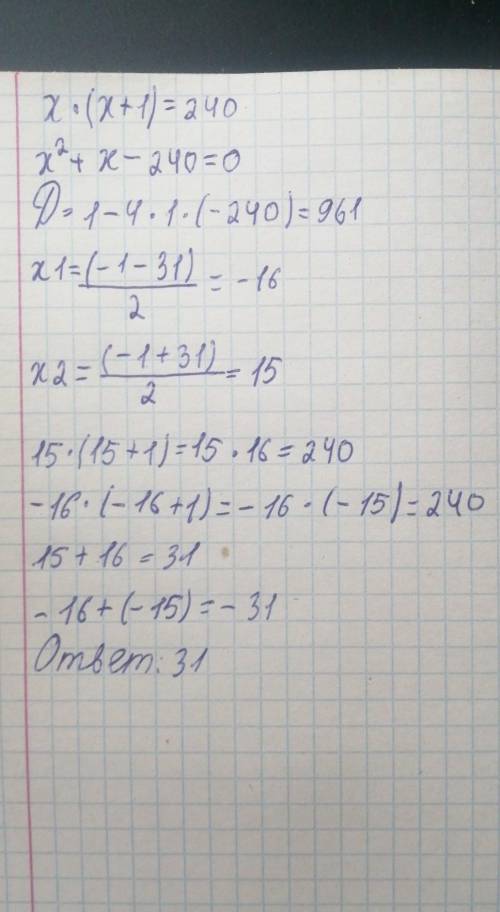 x·(x+1)=240
x²+x-240=0
D=1-4·1·(-240)=961
x1=(-1-31)/2=-16
x2=(-1+31)/2=15
15·(15+1)=15·16=240
-16·(-16+1)=-16·(-15)=240
15+16=31
-16+(-15)=-31
Ответ: 31